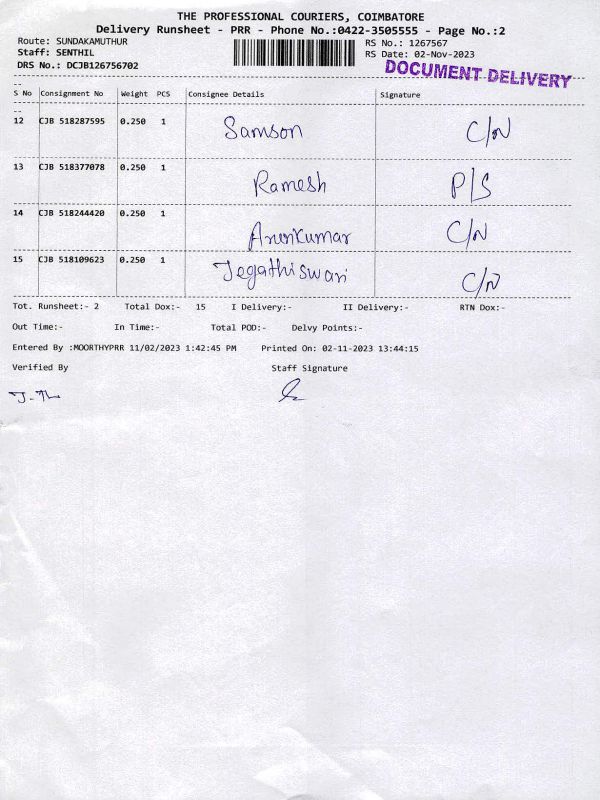 THE PROFESSIONAL COURIERS, COIMBATORE
Delivery Runsheet - PRR - Phone No.:0422-3505555 - Page No.:2
Route: SUNDAKAMUTHUR RS No.: 1267567
Staff: SENTHIL RS Date: 02-Nov-2023
DRS No.: DCJB126756702 DOCUMENT DELIVERY
S No Consignment No Weight PCS Consignee Details Signature
12 CJB 518287595 0.250 1 Samson C/N
13 CJB 518377078 0.250 1 Ramesh P/S
14 CJB 518244420 0.250 1 Arunkumar C/N
15 CJB 518109623 0.250 1 Jegathiswari C/N
Tot. Runsheet:- 2 Total Dox:- 15 I Delivery:- II Delivery:- RTN Dox:-
Out Time:- In Time:- Total POD:- Delvy Points:-
Entered By :MOORTHYPRR 11/02/2023 1:42:45 PM Printed On: 02-11-2023 13:44:15
Verified By Staff Signature